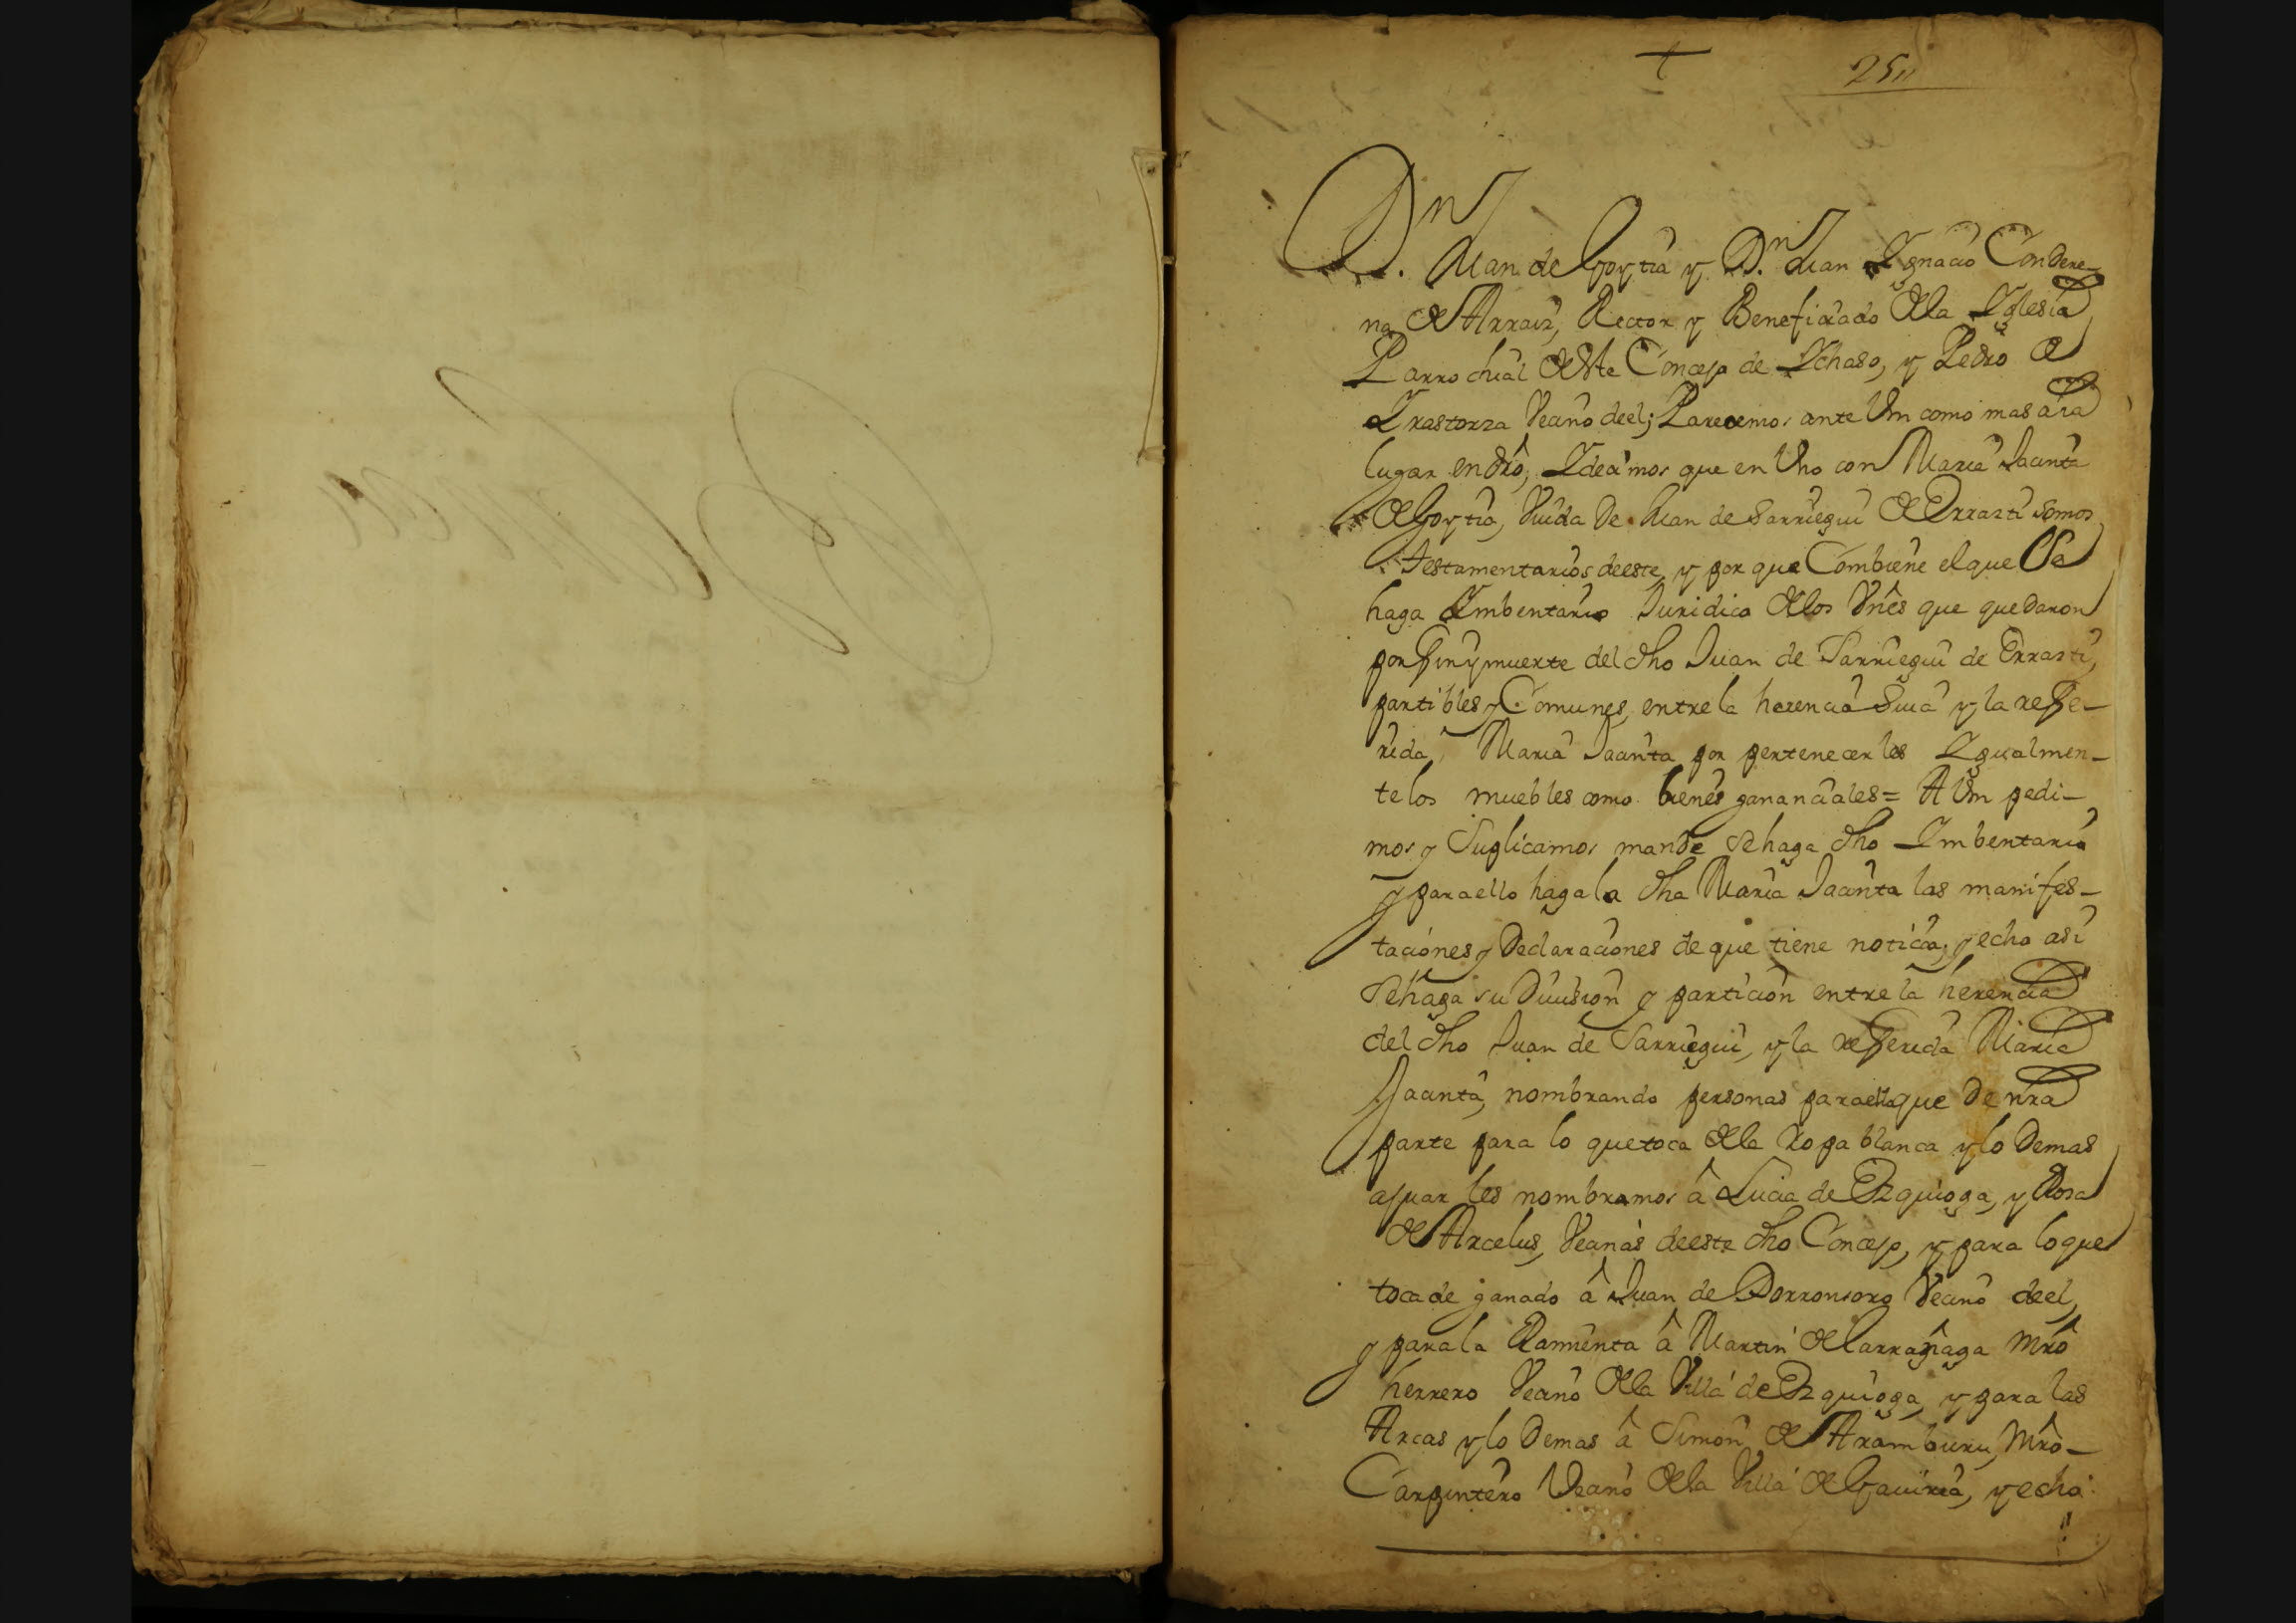 + 25"
Dn
Juan de Goytia y Dn. Juan Ygnacio Condere-
na de Arraiz, Rector y Beneficiado de la Yglesia
Parrochial de este Concejo de Ychaso, y Pedro de
Yrastorza Vecino de el; Parecemos ante Vm como mas aia
lugar en dro, Ydecimos que en Uno con Maria Jacinta
de Goytia, Viuda De Juan de Sarriegui de Errazti somos
testamentarios de este, y por que Combiene el que Se
haga Ymbentario Juridico de los Vnes que quedaron
por fin y muerte del dho Juan de Sarriegui de Errazti,
partibles y Comunes, entre la herencia Suia y la refe-
rida, Maria Jacinta por pertenecerles Ygualmen-
te los muebles como bienes gananciales = A Vm pedi-
mos y Suplicamos mande Se haga dho Ymbentario
y para ello haga la dha Maria Jacinta las manifes-
taciones y Declaraciones de que tiene noticia, y echo asi
Se haga su Division y particion entre la herencia
del dho Juan de Sarriegui, y la referida Maria
Jacinta, nombrando personas para ello que De nra
parte para lo que toca de la Ropa blanca y lo Demas
ajuar les nombramos â Lucia de Ezquioga, y Rosa
de Arcelus, Vecinas de este dho Concejo, y para lo que
toca de ganado â Juan de Dorronsoro Vecino de el,
y para la Ramienta â Martin de Larrañaga Mro
herrero Vecino de la Villa de Ezquioga, y para las
Arcas y lo Demas â Simon de Aramburu, Mro-
Carpintero Vecino de la Villa de Gaviria, y echa